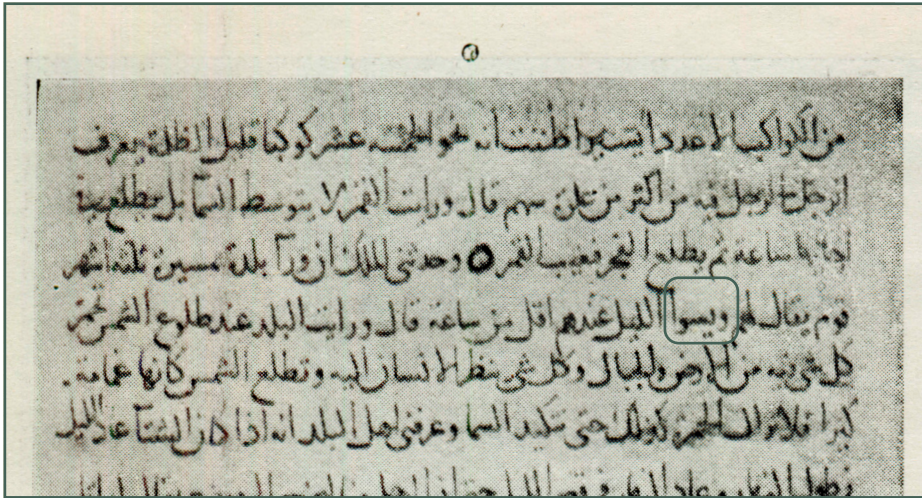 من الكواكب الا عددا يسيرا ظننت انه نحو الخمسة عشر كوكبا قليل الظلمة يعرف
الرجل الرجل فيه من اكثر من سهم قال ورايت القمر لا يتوسط السما بل يطلع
ساعة ثم يطلع الفجر فيغيب القمر ٥ وحدثني الملك ان ورآ بلده بمسيرة ثلثه اشهر
قوم يقال لهم ويسوا الليل عندهم اقل من ساعة قال ورايت البلد عند طلوع الشمس يحمر
كل شي فيه من الارض والجبال وكل شي ينظر الانسان اليه وتطلع الشمس كانها غمامة
كبرا فلا تزال الحمرة كذلك حتى تتكبد السما وعرفني اهل البلد انه اذا كان الشتآ عاد الليل